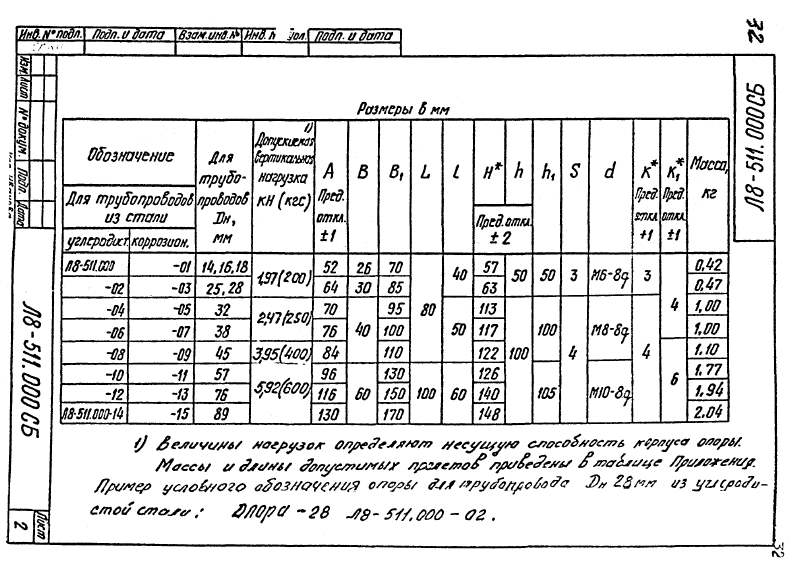 Инв. № подл. Подп. и дата Взам. инв. № Инв. № Подп. и дата
32
Л8-511.000СБ
Изм. Лист № докум. Подп. Дата
Размеры в мм
Обозначение
Для трубопроводов из стали
углеродист. коррозион.
Для трубо-проводов Dн, мм
Допускаемая вертикальная нагрузка кН (кгс) 1)
A Пред. откл. ±1
B B₁ L l
H* h
Пред. откл. ±2
h₁ S d
K* Пред. откл. +1
K₁* Пред. откл. ±1
Масса, кг
Л8-511.000 -01 14,16,18 1,97(200) 52 26 70 80 40 57 50 50 3 М6-8g 3 4 0,42
-02 -03 25,28 64 30 85 63 0,47
-04 -05 32 2,47(250) 70 40 95 50 113 100 100 4 М8-8g 4 1,00
-06 -07 38 76 100 117 1,00
-08 -09 45 3,95(400) 84 110 122 6 1.10
-10 -11 57 5,92(600) 96 60 130 100 60 126 105 М10-8g 1,77
-12 -13 76 116 150 140 1,94
Л8-511.000-14 -15 89 130 170 148 2.04
1) Величины нагрузок определяют несущую способность корпуса опоры.
Массы и длины допустимых пролетов приведены в таблице Приложения.
Пример условного обозначения опоры для трубопровода Dн 28 мм из углероди-
стой стали: Опора -28 Л8-511.000-02.
Л8-511.000СБ
Лист
2
32